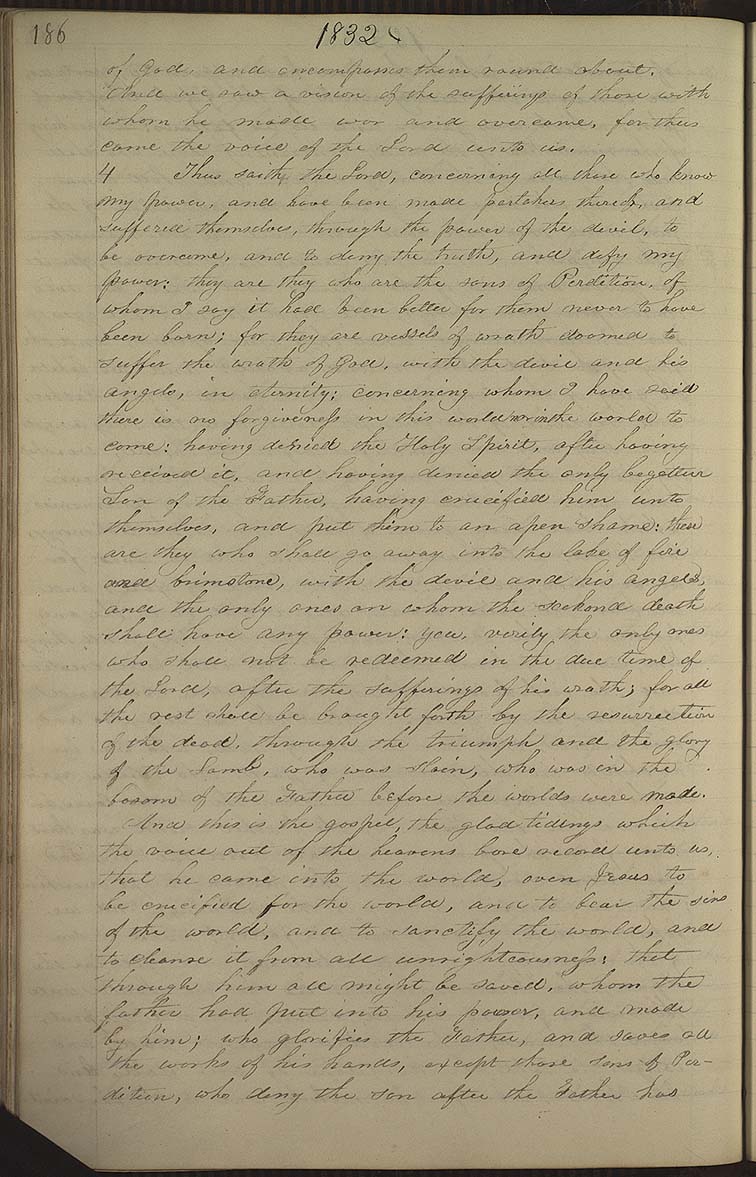 186 1832
of God, and encompasses them round about.
And we saw a vision of the sufferings of those with
whom he made war and overcame, for thus
came the voice of the Lord unto us.
4 Thus saith the Lord, concerning all those who know
my power, and have been made partakers thereof, and
suffered themselves, through the power of the devil, to
be overcome, and to deny the truth, and defy my
power: they are they who are the sons of Perdition, of
whom I say it had been better for them never to have
been born; for they are vessels of wrath doomed to
suffer the wrath of God, with the devil and his
angels, in eternity; concerning whom I have said
there is no forgiveness in this world nor in the world to
come: having denied the Holy Spirit, after having
received it, and having denied the only begotten
Son of the Father, having crucified him unto
themselves, and put him to an open shame: these
are they who shall go away into the lake of fire
and brimstone, with the devil and his angels,
and the only ones on whom the seckond death
shall have any power: yea, verily the only ones
who shall not be redeemed in the due time of
the Lord, after the sufferings of his wrath; for all
the rest shall be brought forth by the resurrection
of the dead, through the triumph and the glory
of the Lamb, who was slain, who was in the
bosom of the Father before the worlds were made.
And this is the gospel, the glad tidings which
the voice out of the heavens bore record unto us,
that he came into the world, even Jesus to
be crucified for the world, and to bear the sins
of the world, and to sanctify the world, and
to cleanse it from all unrighteousness; that
through him all might be saved, whom the
father had put into his power, and made
by him; who glorifies the Father, and saves all
the works of his hands, except those sons of Per-
dition, who deny the son after the Father has